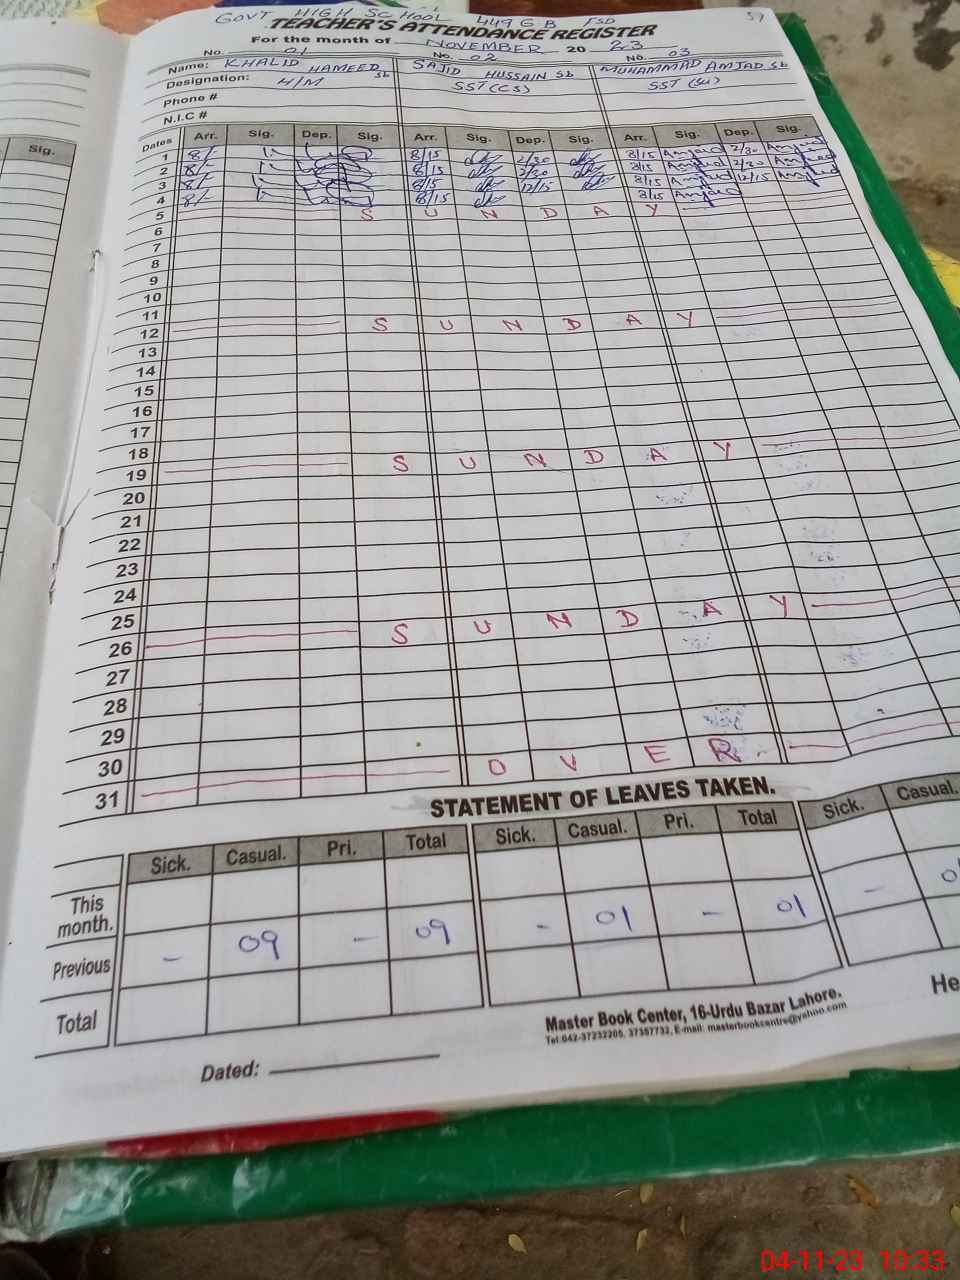 GOVT HIGH SCHOOL 449 GB TSD 57
TEACHER'S ATTENDANCE REGISTER
For the month of NOVEMBER 2023
No. 01 No. 02 No. 03
Name: KHALID HAMEED Sb SAJID HUSSAIN Sb MUHAMMAD AMJAD Sb
Designation: H/M SST(CS)
Phone #
N.I.C #
Sig. Dates Arr. Sig. Dep. Sig. Arr. Sig. Dep. Sig. Arr. Sig. Dep. Sig.
1 8/- 8/15 2/30 8/15 Amjad 2/30 Amjad
2 8/- 8/15 2/30 8/15 Amjad 2/30 Amjad
3 8/- 8/15 12/15 8/15 Amjad 12/15 Amjad
4 8/- 8/15 8/15 Amjad
5 S U N D A Y
6
7
8
9
10
11
12 S U N D A Y
13
14
15
16
17
18
19 S U N D A Y
20
21
22
23
24
25
26 S U N D A Y
27
28
29
30
31 O V E R
STATEMENT OF LEAVES TAKEN.
Sick. Casual. Pri. Total Sick. Casual. Pri. Total Sick. Casual.
This month.
Previous - 09 - 09 - 01 - 01 -
Total
Master Book Center, 16-Urdu Bazar Lahore.
Tel:042-37232205, 37357732, E-mail: masterbookcentre@yahoo.com
He
Dated:
04-11-23 10:33